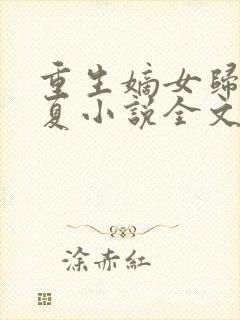 重生嫡女歸
夏小說全文
涂赤紅